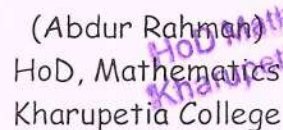 (Abdur Rahman)
HoD, Mathematics
Kharupetia College
HoD Math
Kharupet